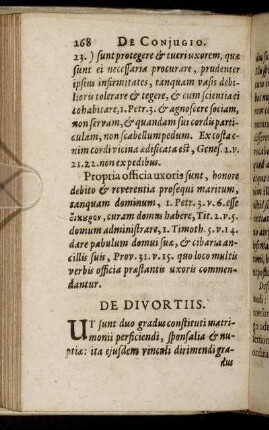 268 DE CONJUGIO.
23.) sunt protegere & tueri uxorem, quæ
sunt ei necessaria procurare, prudenter
ipsius infirmitates, tanquam vasis debi-
lioris tolerare & tegere, & cum scientia ei
cohabitare, 1. Petr. 3. & agnoscere sociam,
non servam, & quandam sui cordis parti-
culam, non scabellum pedum. Ex costa e-
nim cordi vicina ædificata est, Genes. 2. v.
21. 22. non ex pedibus.
Propria officia uxoris sunt, honore
debito & reverentia prosequi maritum,
tanquam dominum, 1. Petr. 3. v. 6. esse
οἰκουρον, curam domus habere, Tit. 2. v. 5.
domum administrare, 1. Timoth. 5. v. 14.
dare pabulum domui suæ, & cibaria an-
cillis suis, Prov. 31. v. 15. quo loco multis
verbis officia præstantis uxoris commen-
dantur.
DE DIVORTIIS.
UT sunt duo gradus constituti matri-
monii perficiendi, sponsalia & nu-
ptiæ: ita ejusdem vinculi dirimendi gra-
dus